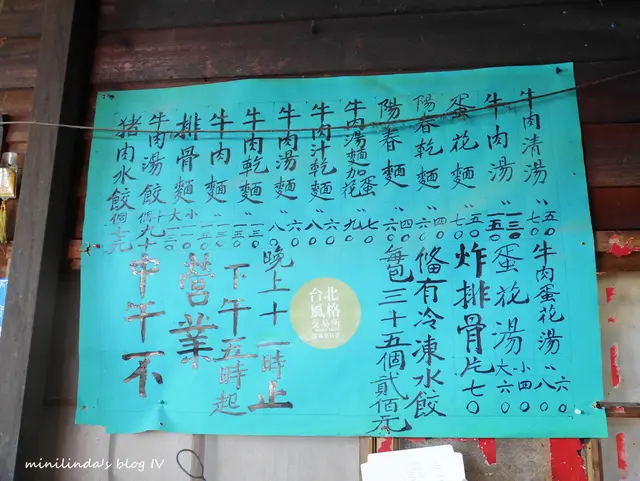 牛肉清湯 〃 五〇 七〇
牛肉湯 〃 一三〇 一五〇
蛋花麵 〃 五〇 七〇
陽春乾麵 〃 四〇 六〇
陽春麵 〃 四〇 六〇
牛肉湯麵加蛋花 〃 七〇 九〇
牛肉汁乾麵 〃 六〇 八〇
牛肉湯麵 〃 六〇 八〇
牛肉乾麵 〃
牛肉麵 〃
排骨麵 小 大
牛肉湯餃 十個 九十
豬肉水餃 個
牛肉蛋花湯 〃 六〇 八〇
蛋花湯 小四〇 大六〇
炸排骨片七〇
備有冷凍水餃
每包三十五個貳佰元
晚上十一時止
下午五時起
營業
中午不
台北
風格
交易所
minilinda's blog IV